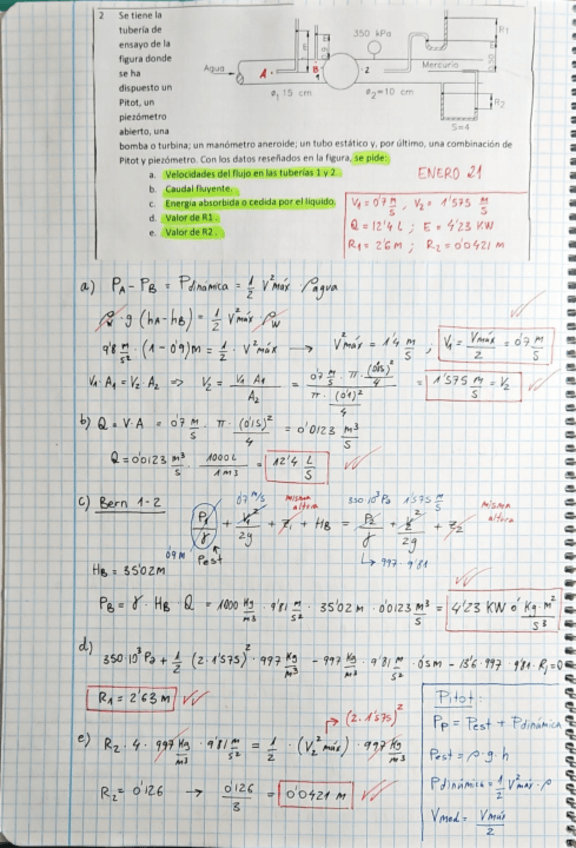 2 Se tiene la
tubería de
ensayo de la
figura donde
se ha
dispuesto un
Pitot, un
piezómetro
abierto, una
bomba o turbina; un manómetro aneroide; un tubo estático y, por último, una combinación de
Pitot y piezómetro. Con los datos reseñados en la figura, se pide:
a. Velocidades del flujo en las tuberías 1 y 2.
b. Caudal fluyente.
c. Energía absorbida o cedida por el líquido.
d. Valor de R1.
e. Valor de R2.
350 kPa
R1
Agua
A
B
1
2
Mercurio
ø1 15 cm
ø2=10 cm
R2
S=4
ENERO 21
V1 = 0'7 m/s , V2 = 1'575 m/s
Q = 12'4 L ; E = 4'23 KW
R1 = 2'6 m ; R2 = 0'0421 m
a) PA - PB = Pdinámica = 1/2 V²máx ρagua
ρw · g (hA - hB) = 1/2 V²máx ρw
9'8 m/s² · (1 - 0'9) m = 1/2 · V²máx → V²máx = 1'4 m/s ; V1 = Vmáx/2 = 0'7 m/s
V1 · A1 = V2 · A2 => V2 = V1 A1 / A2 = 0'7 m/s · π · (0'15)²/4 / π · (0'1)²/4 = 1'575 m/s = V2
b) Q = V · A = 0'7 m/s · π · (0'15)²/4 = 0'0123 m³/s
Q = 0'0123 m³/s · 1000 L / 1 m³ = 12'4 L/s
c) Bern 1-2
0'7 m/s
misma altura
350·10³ Pa
1'575 m/s
misma altura
P1/γ + V1²/2g + Z1 + HB = P2/γ + V2²/2g + Z2
0'9 m
Pest
↳ 997 · 9'81
HB = 35'02 m
PB = γ · HB · Q = 1000 Kg/m³ · 9'81 m/s² · 35'02 m · 0'0123 m³/s = 4'23 KW ó Kg·m²/s³
d)
350·10³ Pa + 1/2 (2·1'575)² · 997 Kg/m³ - 997 Kg/m³ · 9'81 m/s² · 0'5 m - 13'6 · 997 · 9'81 · R1 = 0
R1 = 2'63 m
→ (2·1'575)²
e) R2 · 4 · 997 Kg/m³ · 9'81 m/s² = 1/2 · (V2² máx) · 997 Kg/m³
R2 = 0'126 → 0'126/3 = 0'0421 m
Pitot:
Pp = Pest + Pdinámica
Pest = ρ · g · h
Pdinámica = 1/2 V²máx · ρ
Vmed = Vmáx/2